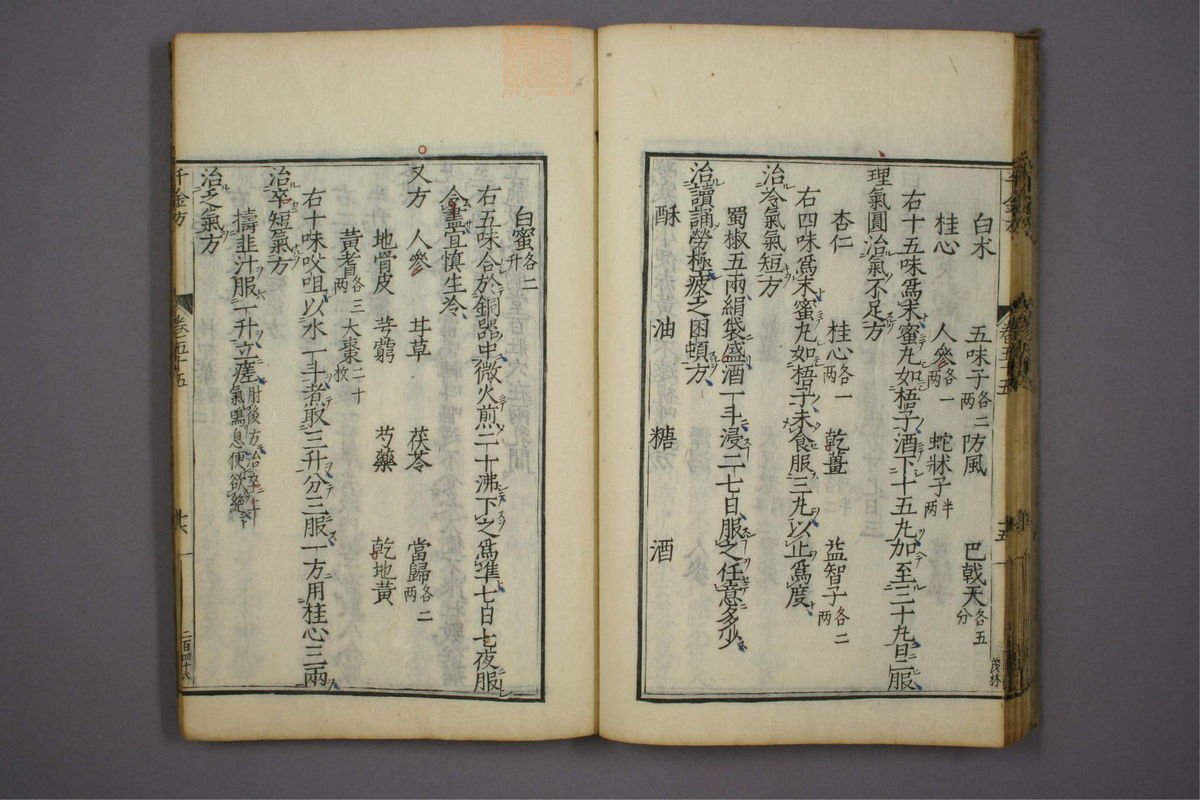 白朮　五味子各二两　防風　巴戟天各五分
桂心　人參各一两　蛇牀子半两
右十五味爲末蜜丸如梧子酒下十五丸加至三十丸日二服
理氣圓治氣不足方
杏仁　桂心各一两　乾薑　益智子各二两
右四味爲末蜜丸如梧子未食服三丸以止爲度
治冷氣氣短方
蜀椒五兩絹袋盛酒一斗浸二七日服之任意多少
治讀誦勞極疲乏困頓方
酥　油　糖　酒
白蜜各二升
右五味合於銅器中微火煎二十沸下之爲準七日七夜服
令盡宜慎生冷
又方　人參　甘草　茯苓　當歸各二两
地骨皮　芎藭　芍藥　乾地黃
黃耆各三两　大棗二十枚
右十味㕮咀以水一斗煮取三升分三服一方用桂心三兩
治卒短氣方
擣韭汁服一升立瘥肘後方治卒上氣鳴息便欲絶
治乏氣方
千金方　卷五十五　十五　茂林
千金方　卷五十五　十六　二百四十六